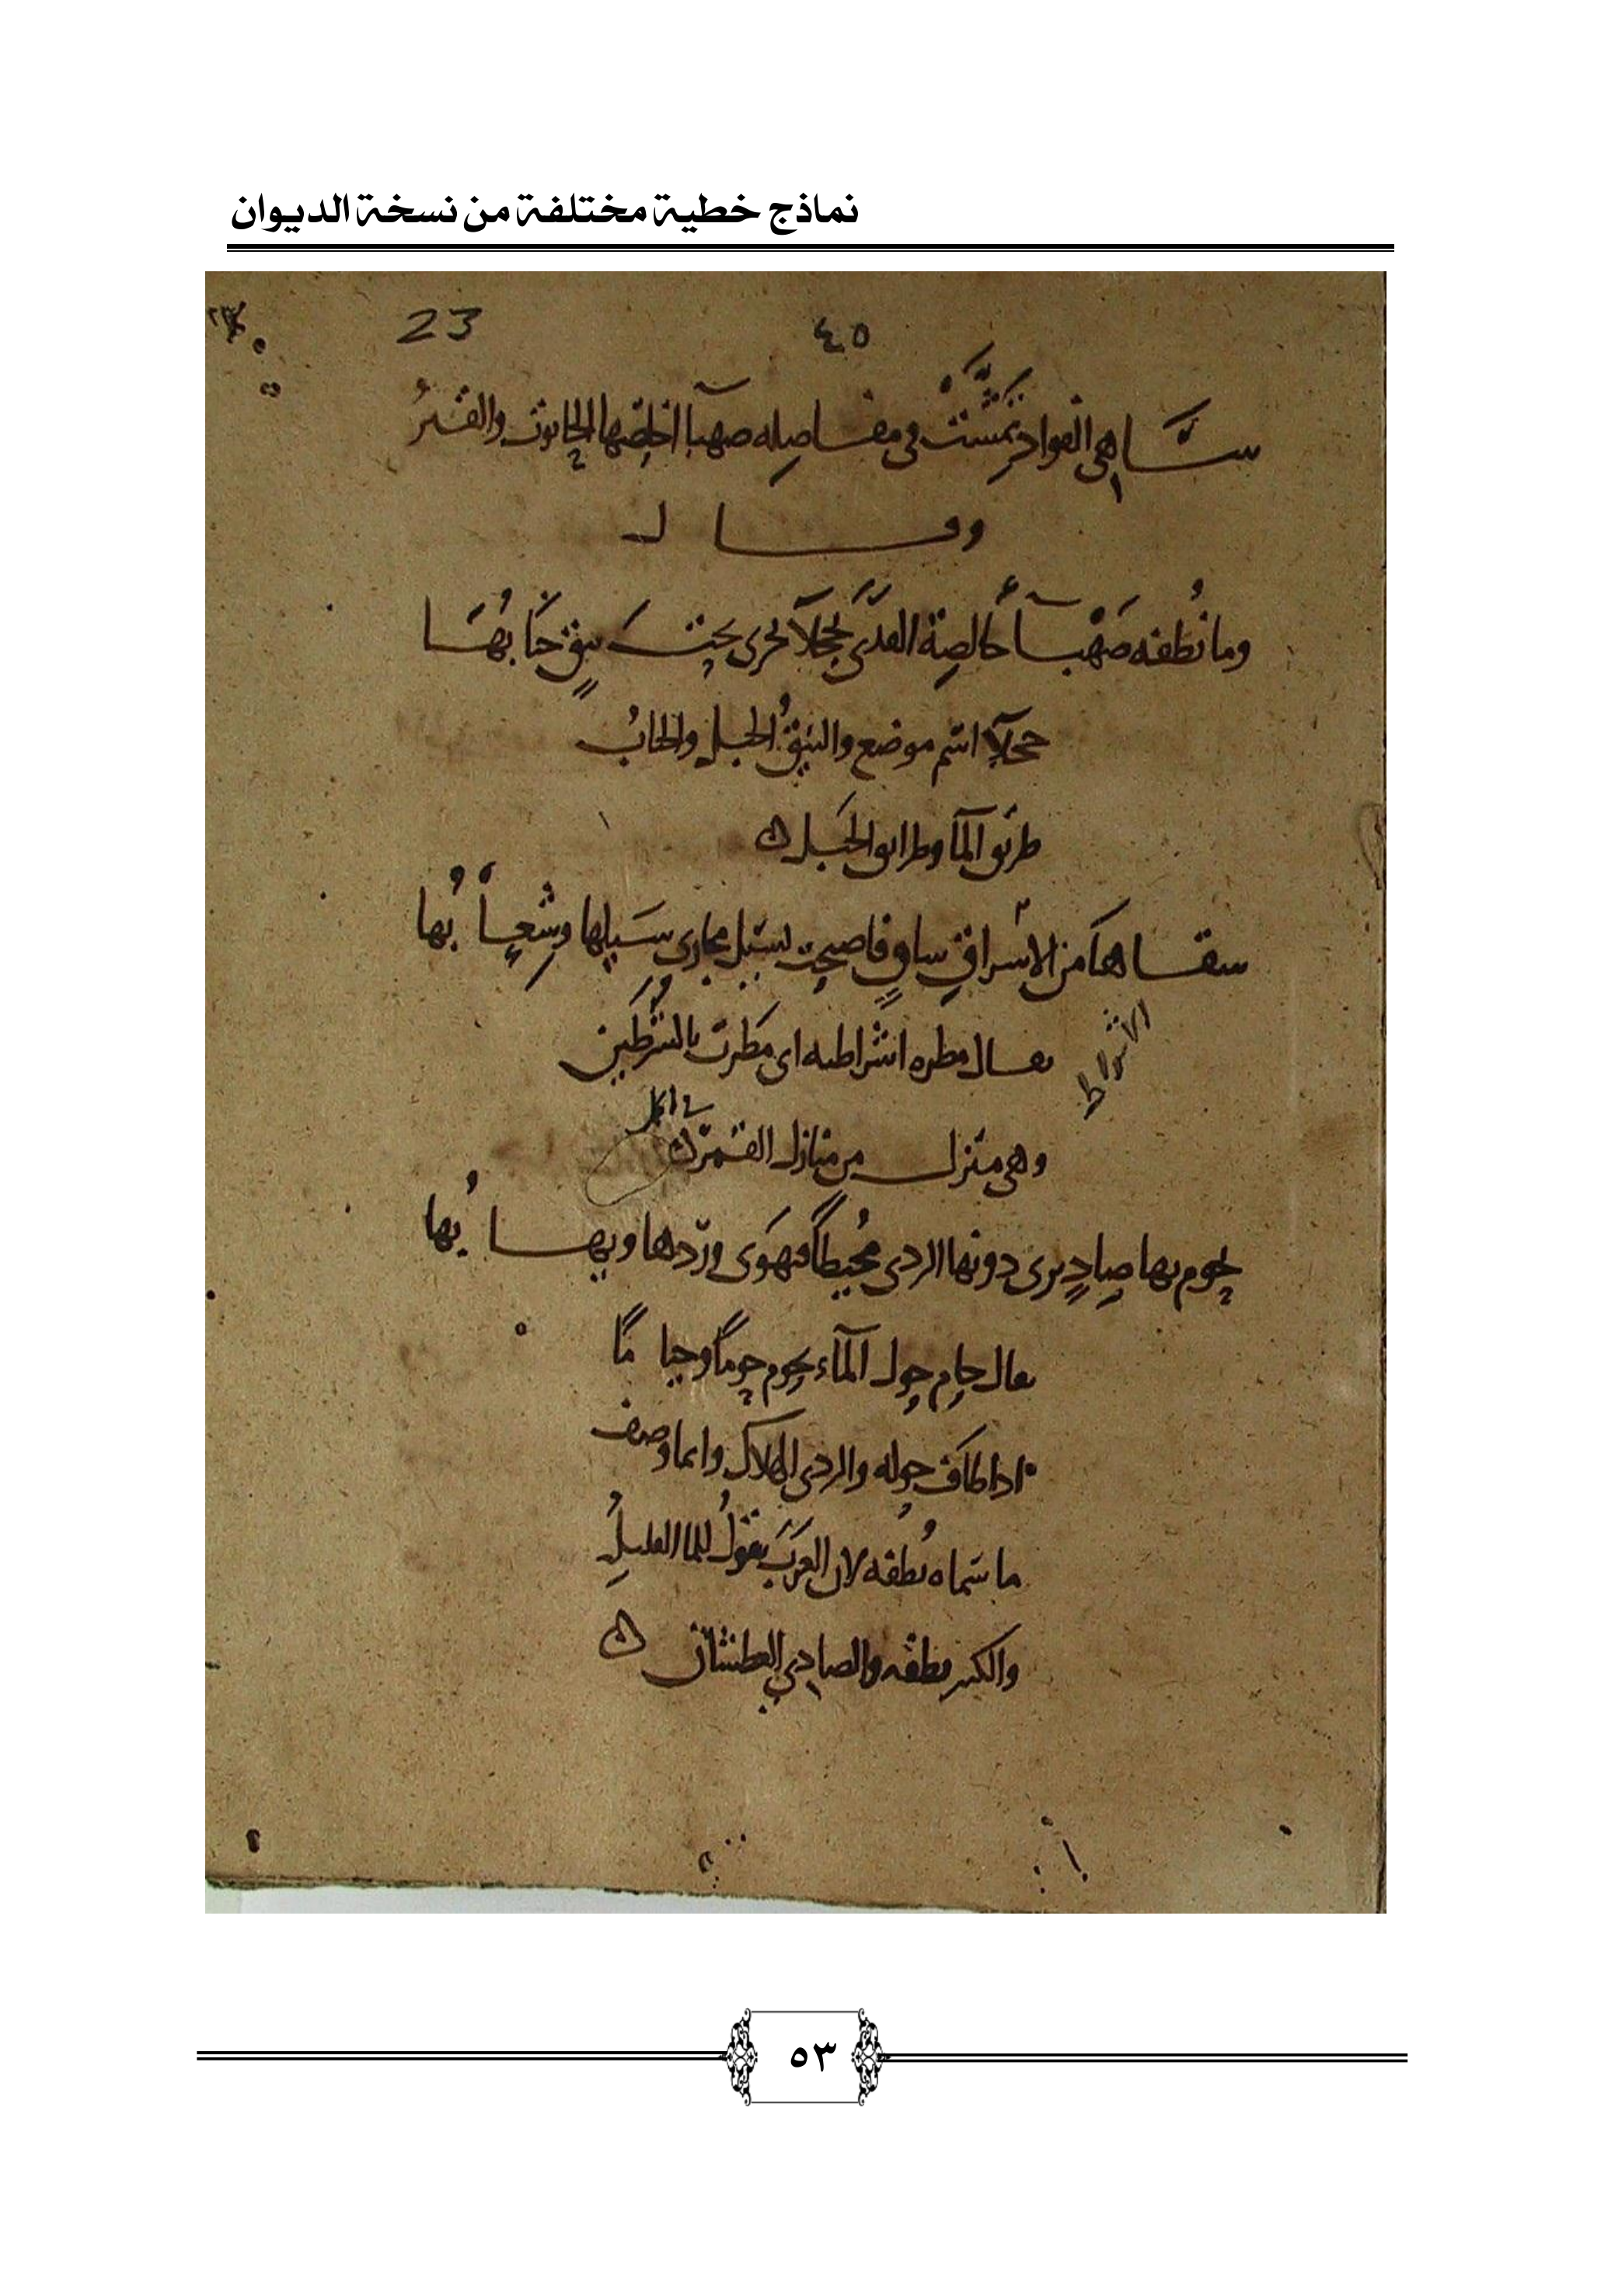 نماذج خطية مختلفة من نسخة الديوان
٤٥ 23
ساهي الفواد تمشت في مفاصله صهبا اخلصها الحانوت والقسر
وقال
وما نُطفه صَهْبآ خالصة القذى بحجلآ يجرى تحت نيقٍ حَبابُهَا
حجلآ اسم موضع والنيقُ الجبل والحبابُ
طريق المآ وطرايق الجبل ه
سقاها من الاشراط ساقٍ فاصبحت تسيل مجارى سَيلها وشِعابُها
يقال مطره اشراطيه اى مَطَرت بالشَّرَطين
الاشراط
وهي منزل من منازل القمر ه
في الحمل
يحوم بها صادٍ يرى دونها الردى محُيطًا فيهوَى وِرْدها ويهابُها
يقال حام حول المآء يحوم حومًا وحيامًا
اذا طاف حوله والردى الهلاك وانما وصف
ما سماه نُطفه لان العرَبَ تقولُ للما القليلِ
والكثير نطفه والصادي العطشان ه
٥٣